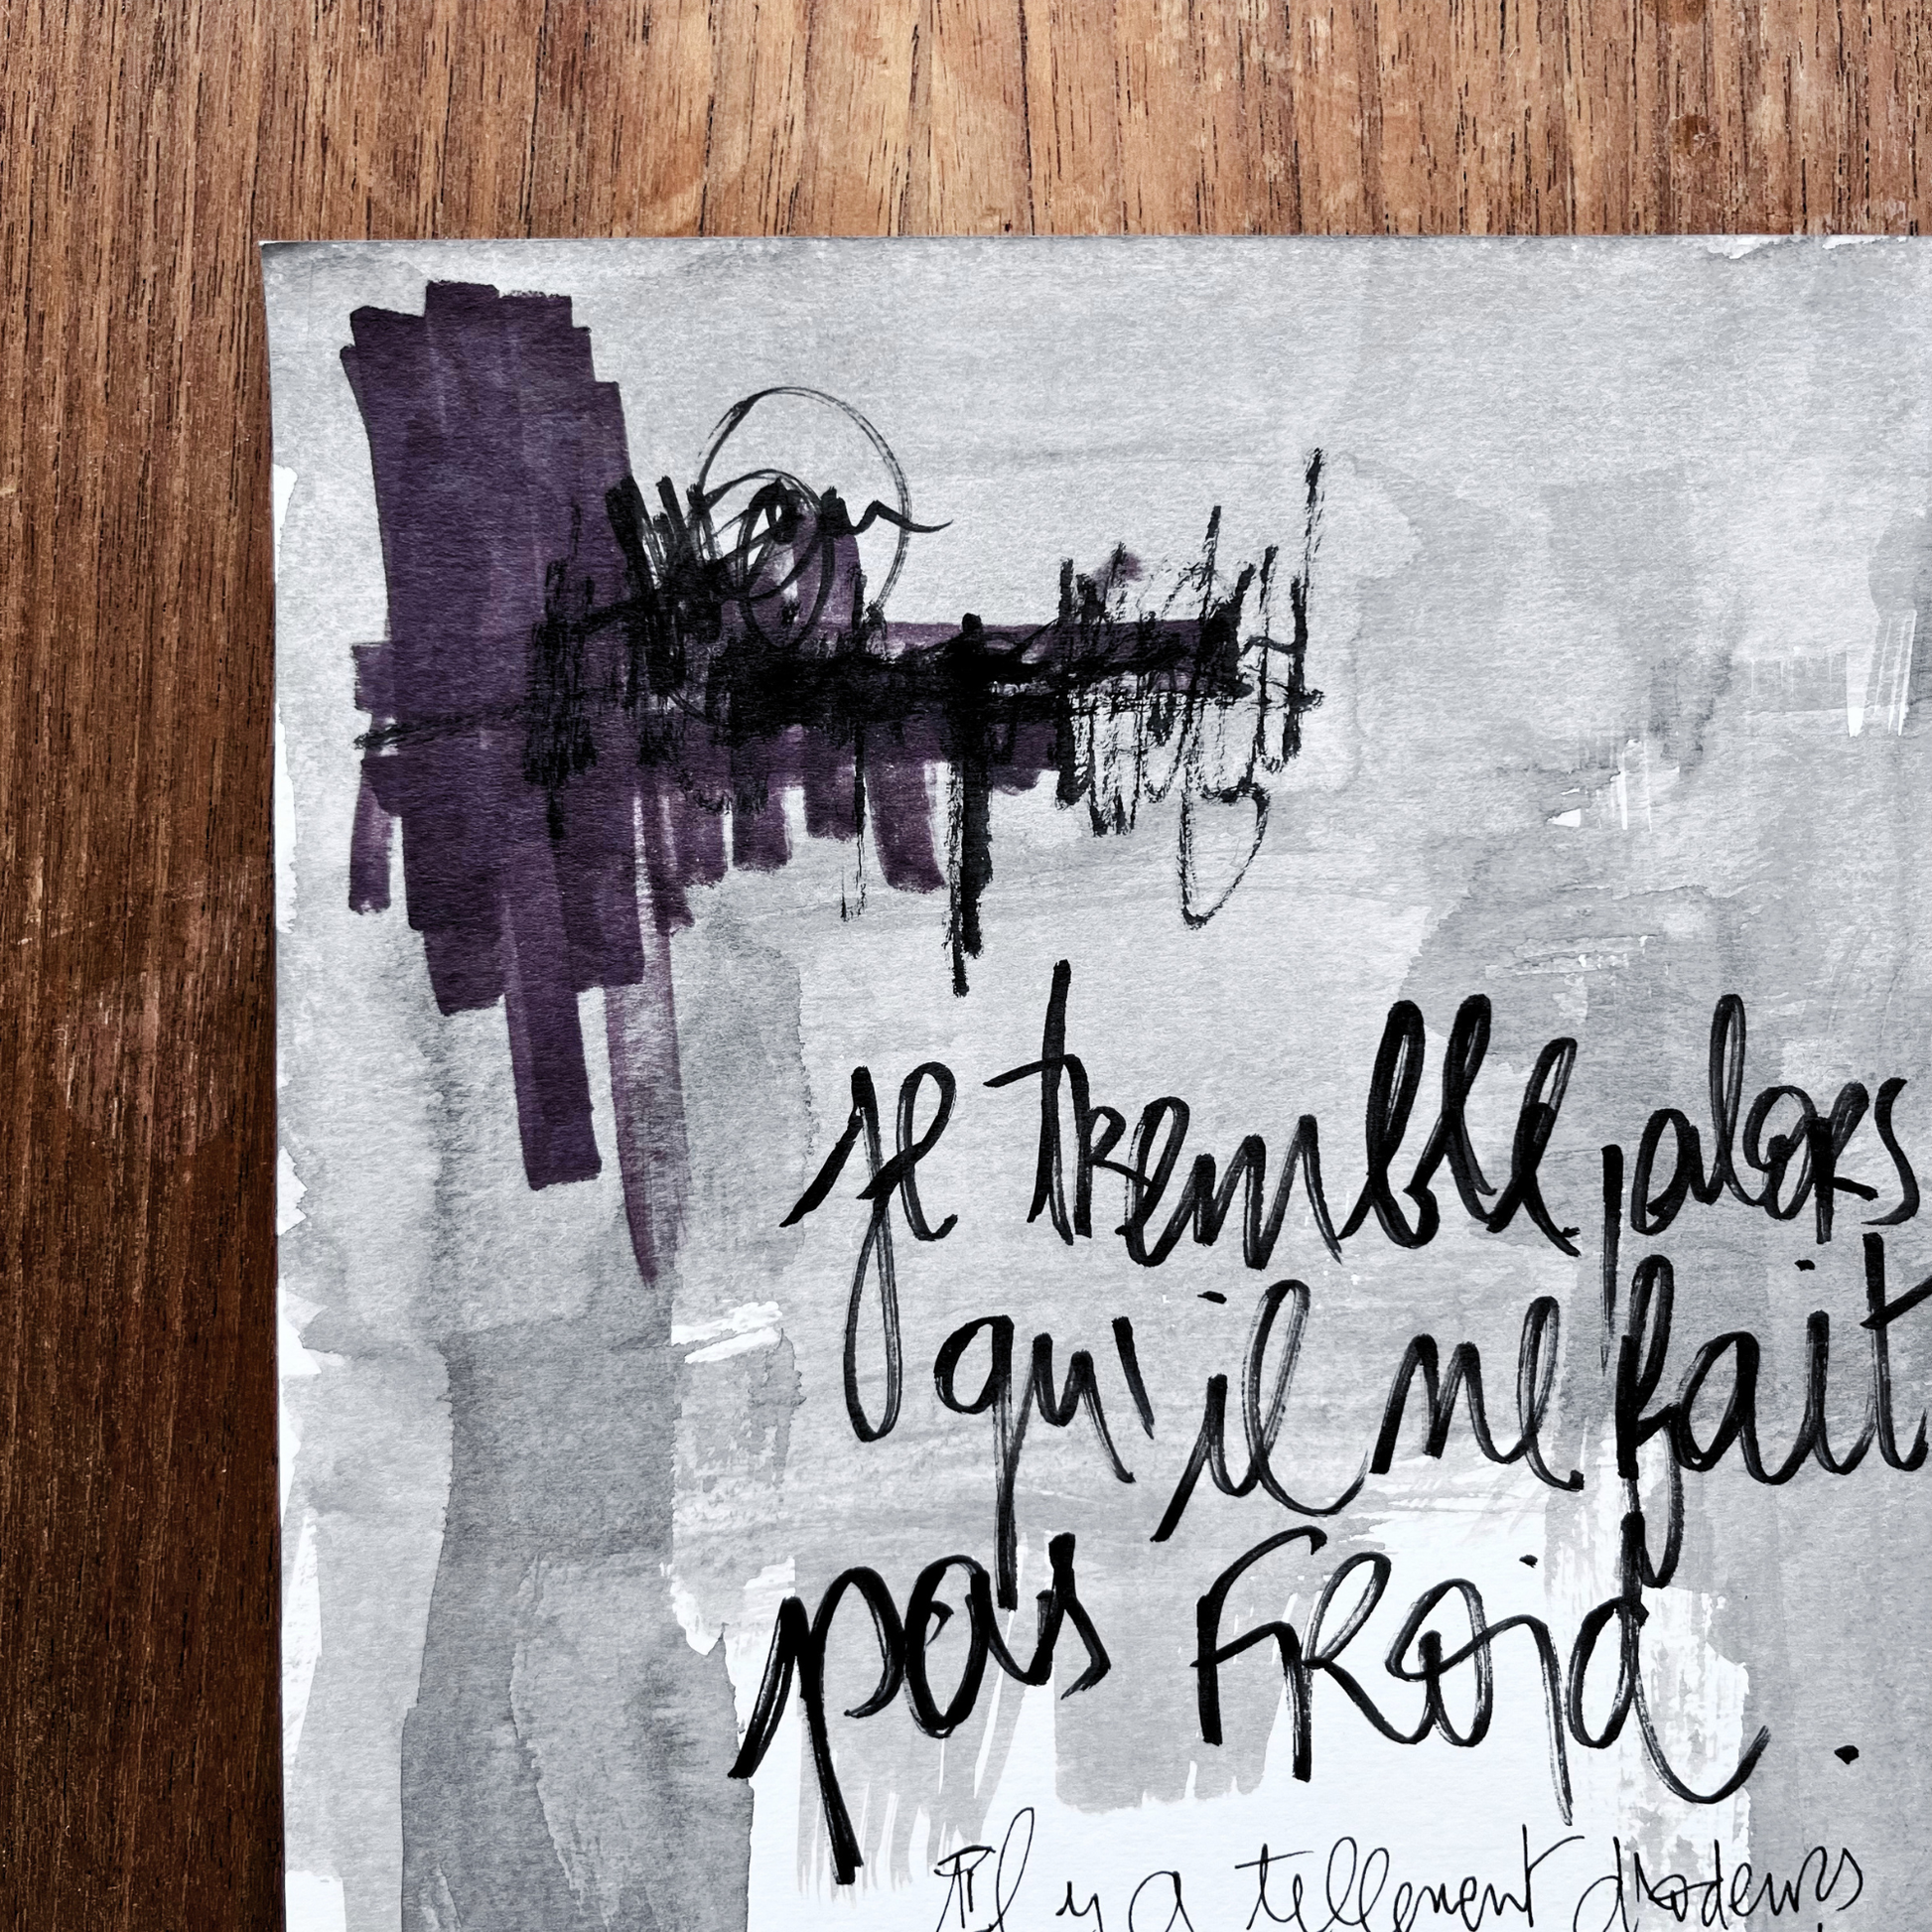 je tremble, alors
qu'il ne fait
pas froid.
Il y a tellement d'odeurs